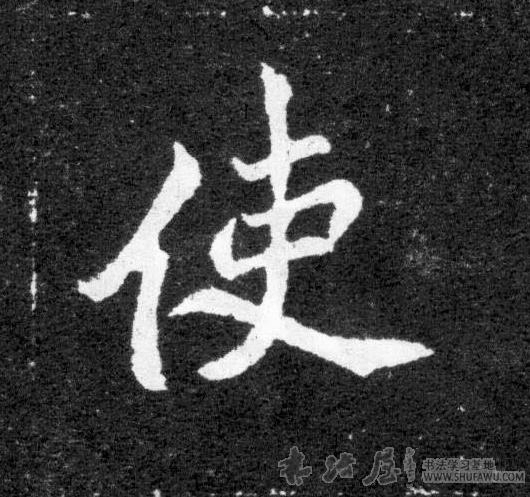 使
书法屋
书法学习基地
WWW.SHUFAWU.COM